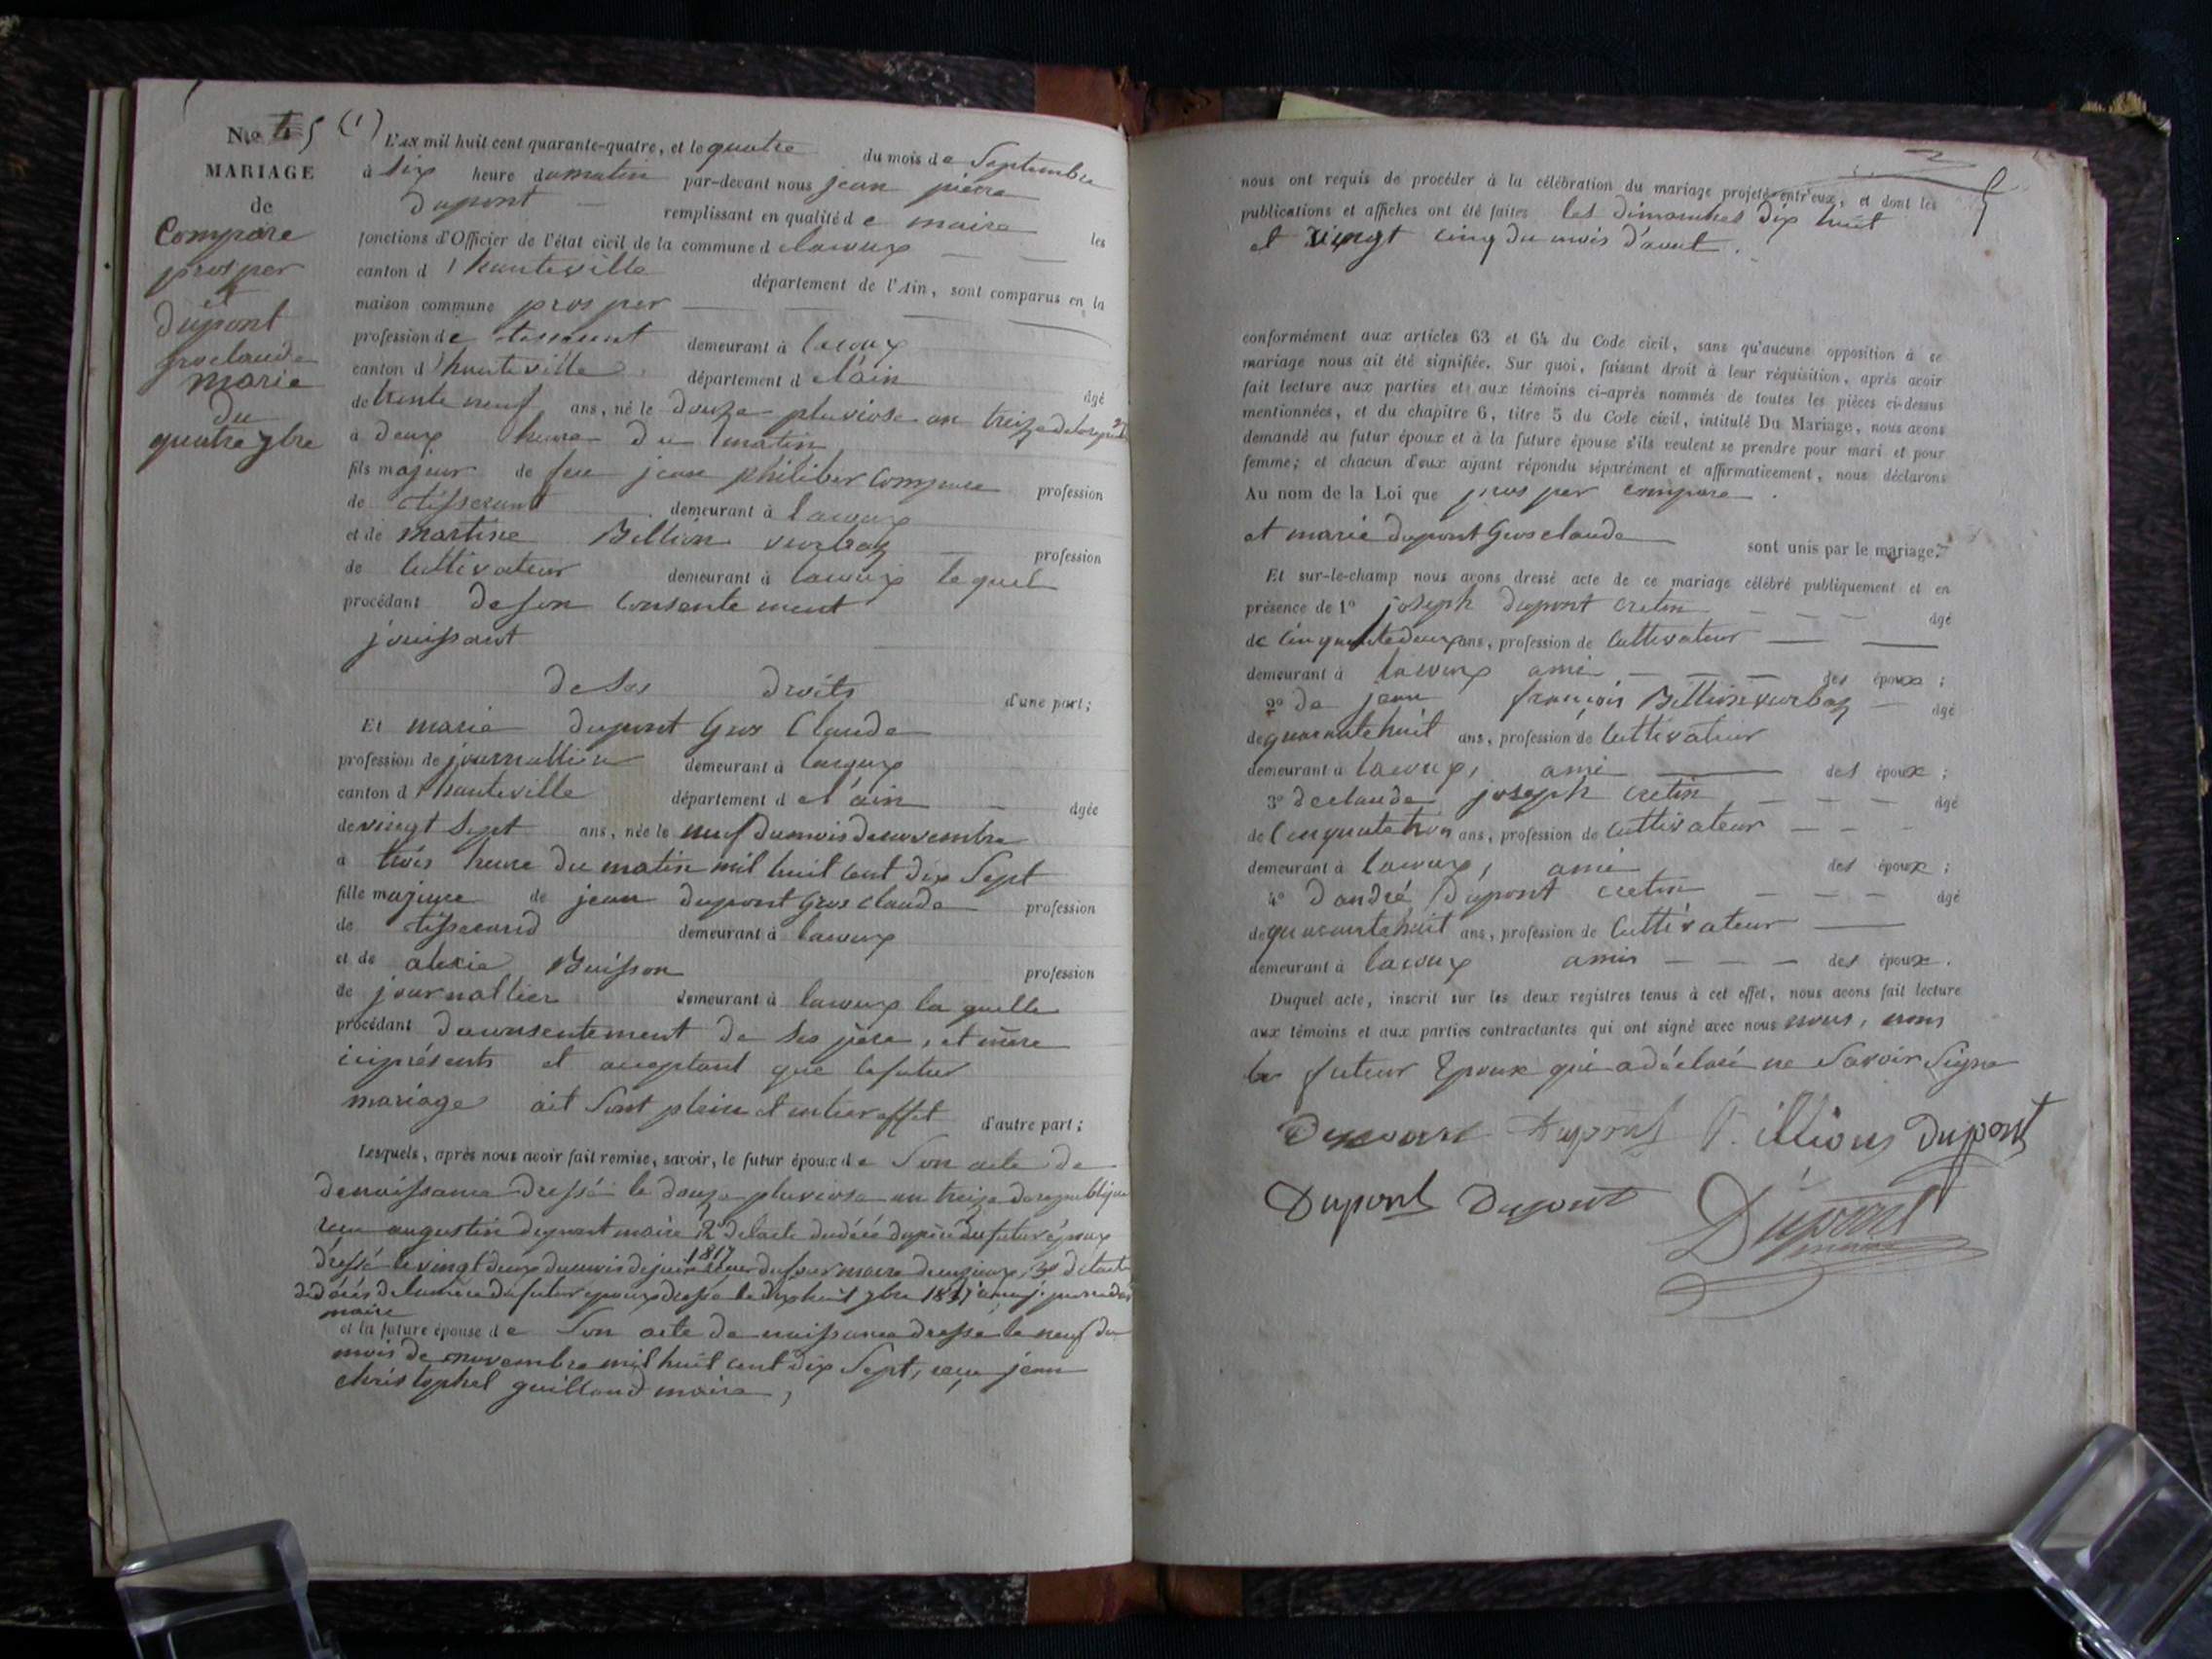 No 5 (1)
MARIAGE
de
Compare
prosper
et
Dupont
groclaude
marie
du
quatre 7bre
L'AN mil huit cent quarante-quatre, et le quatre du mois de Septembre
à six heure du matin par-devant nous jean pierre
Dupont remplissant en qualité de maire les
fonctions d'Officier de l'état civil de la commune de lacoux
canton d'hauteville département de l'Ain, sont comparus en la
maison commune prosper
profession de tisserant demeurant à lacoux
canton d'hauteville département de l'ain âgé
de trente neuf ans, né le douze pluviose an treize de la republ
à deux heure du matin
fils majeur de feu jean philiber Compare profession
de tisserant demeurant à lacoux
et de martine Billion profession
de Cultivateur demeurant à lacoux lequel
procédant de son consentement
jouissant
de ses droits d'une part;
Et marie dupont Gros Claude
profession de journallier demeurant à lacoux
canton d'hauteville département de l'ain âgée
de vingt sept ans, née le neuf du mois de novembre
à trois heure du matin mil huit cent dix sept
fille majeure de jean dupont gros claude profession
de tisserand demeurant à lacoux
et de alexie Buisson profession
de journallier demeurant à lacoux la quelle
procédant du consentement de ses père, et mère
ciprésents et acceptant que le futur
mariage ait sont plein et entier effet d'autre part;
Lesquels, après nous avoir fait remise, savoir, le futur époux de Son acte de
de naissance dressé le douze pluviose an treize de republique
reçu augustin dupont maire 2° de l'acte du décé du père du futur époux
dressé le vingt deux du mois de juin 1817 maire 3° de l'acte
de décés de la mère du futur epoux dressé le dix huit 7bre
maire
et la future épouse de Son acte de naissance dressé le neuf du
mois de novembre mil huit cent dix Sept, reçu jean
christophel guilland maire,
nous ont requis de procéder à la célébration du mariage projeté entr'eux, et dont les
publications et affiches ont été faites les dimanches dix huit
et vingt cinq du mois d'aout.
conformément aux articles 63 et 64 du Code civil, sans qu'aucune opposition à ce
mariage nous ait été signifiée. Sur quoi, faisant droit à leur réquisition, après avoir
fait lecture aux parties et aux témoins ci-après nommés de toutes les pièces ci-dessus
mentionnées, et du chapitre 6, titre 5 du Code civil, intitulé Du Mariage, nous avons
demandé au futur époux et à la future épouse s'ils veulent se prendre pour mari et pour
femme; et chacun d'eux ayant répondu séparément et affirmativement, nous déclarons
Au nom de la Loi que prosper compare
et marie dupont Gros claude sont unis par le mariage.
Et sur-le-champ nous avons dressé acte de ce mariage célébré publiquement et en
présence de 1° joseph dupont cretin âgé
de cinquante deux ans, profession de Cultivateur
demeurant à lacoux ami des époux;
2° de jean françois Billion âgé
de quarante huit ans, profession de Cultivateur
demeurant à lacoux, ami des époux;
3° de claude joseph cretin âgé
de Cinquante trois ans, profession de Cultivateur
demeurant à lacoux, ami des époux;
4° d'andré dupont cretin âgé
de quarante huit ans, profession de Cultivateur
demeurant à lacoux amis des époux.
Duquel acte, inscrit sur les deux registres tenus à cet effet, nous avons fait lecture
aux témoins et aux parties contractantes qui ont signé avec nous nous, nom
le futeur Epoux qui a déclaré ne Savoir Signe
Dupont Billion Dupont
Dupont Dupont Dupont
maire